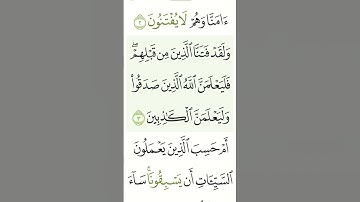 ءَامَنَّا وَهُمْ لَا يُفْتَنُونَ ٢
وَلَقَدْ فَتَنَّا ٱلَّذِينَ مِن قَبْلِهِمْۖ
فَلَيَعْلَمَنَّ ٱللَّهُ ٱلَّذِينَ صَدَقُوا۟
وَلَيَعْلَمَنَّ ٱلْكَٰذِبِينَ ٣
أَمْ حَسِبَ ٱلَّذِينَ يَعْمَلُونَ
ٱلسَّيِّـَٔاتِ أَن يَسْبِقُونَاۚ سَآءَ